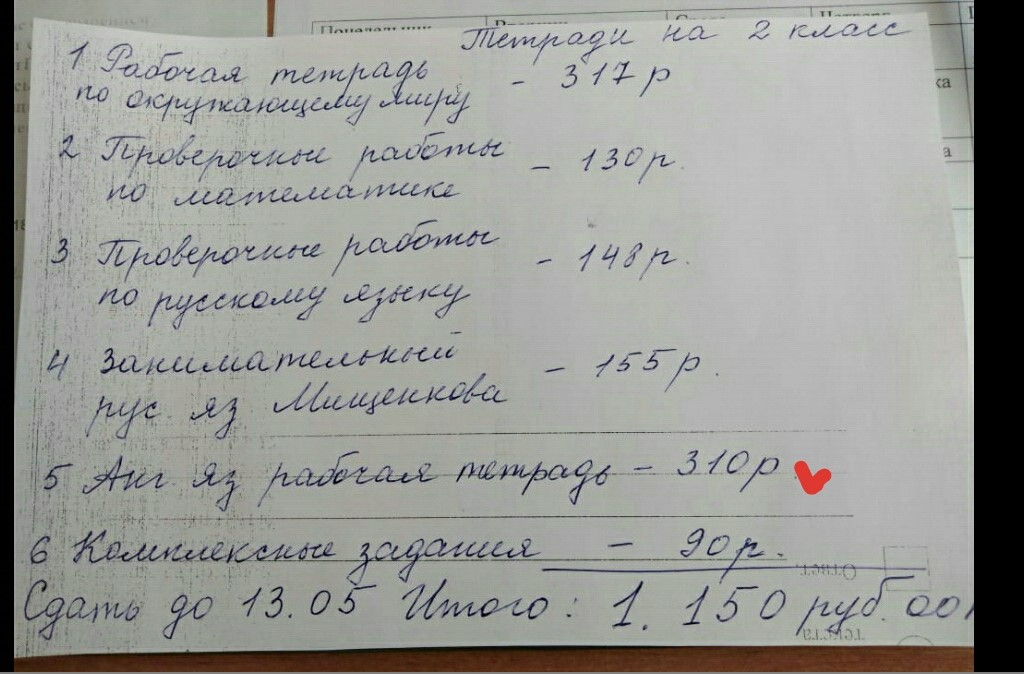 Понедельник
Тетради на 2 класс
1 Рабочая тетрадь
по окружающему миру - 317 р
2 Проверочные работы
по математике - 130р.
3 Проверочные работы
по русскому языку - 148р.
4 Занимательный
рус. яз Мищенкова - 155р.
5 Анг яз рабочая тетрадь - 310р.
6 Комплексные задания - 90р.
Сдать до 13.05 Итого: 1. 150 руб. 00